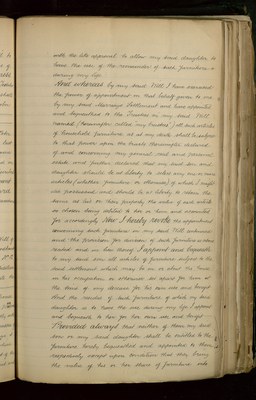 with the like approval to allow my said daughter to
have the use of the remainder of such furniture
during my life
And whereas by my said Will I have exercised
the power of appointment in that behalf given to me
by my said Marriage Settlement and have appointed
and bequeathed to the Trustees in my said Will
named (hereinafter called my trustees) all and
of household furniture as at my death shall be subject
to that power upon the trusts therein declared
of and concerning my general real and personal
estate and further declared that my said son and
daughter should be at liberty to select any one or more
articles (whether furniture or otherwise) of which I might
die possessed and should be at liberty to retain the
same as his or their property the value of such article
so chosen being debited to him or them and accounted
for accordingly Now I hereby revoke the appointment
concerning such furniture in my said Will contained
and the provision for selection of such furniture
and in lieu thereof I appoint and bequeath
to my said son all articles of furniture subject to the
said settlement which may be in or about my house
in his occupation or otherwise set apart for him at
the time of my decease for his own use and benefit
And the residue of such furniture of which my said
daughter is to have the use during my life I appoint
and bequeath to her for her own use and benefit
Provided always that neither of them my said
son or my said daughter shall be entitled to the
furniture hereby bequeathed and appointed to them
respectively except upon condition that they bring
the value of his or her share of furniture into